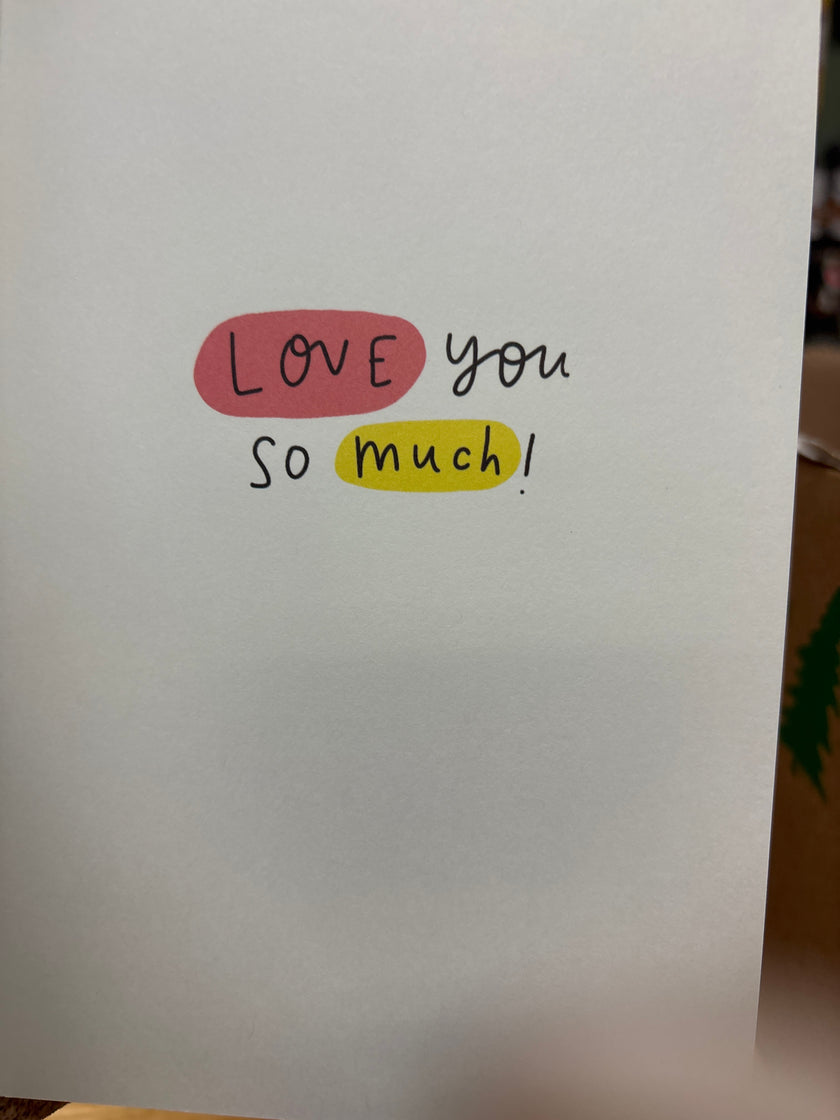 LOVE you
so much!